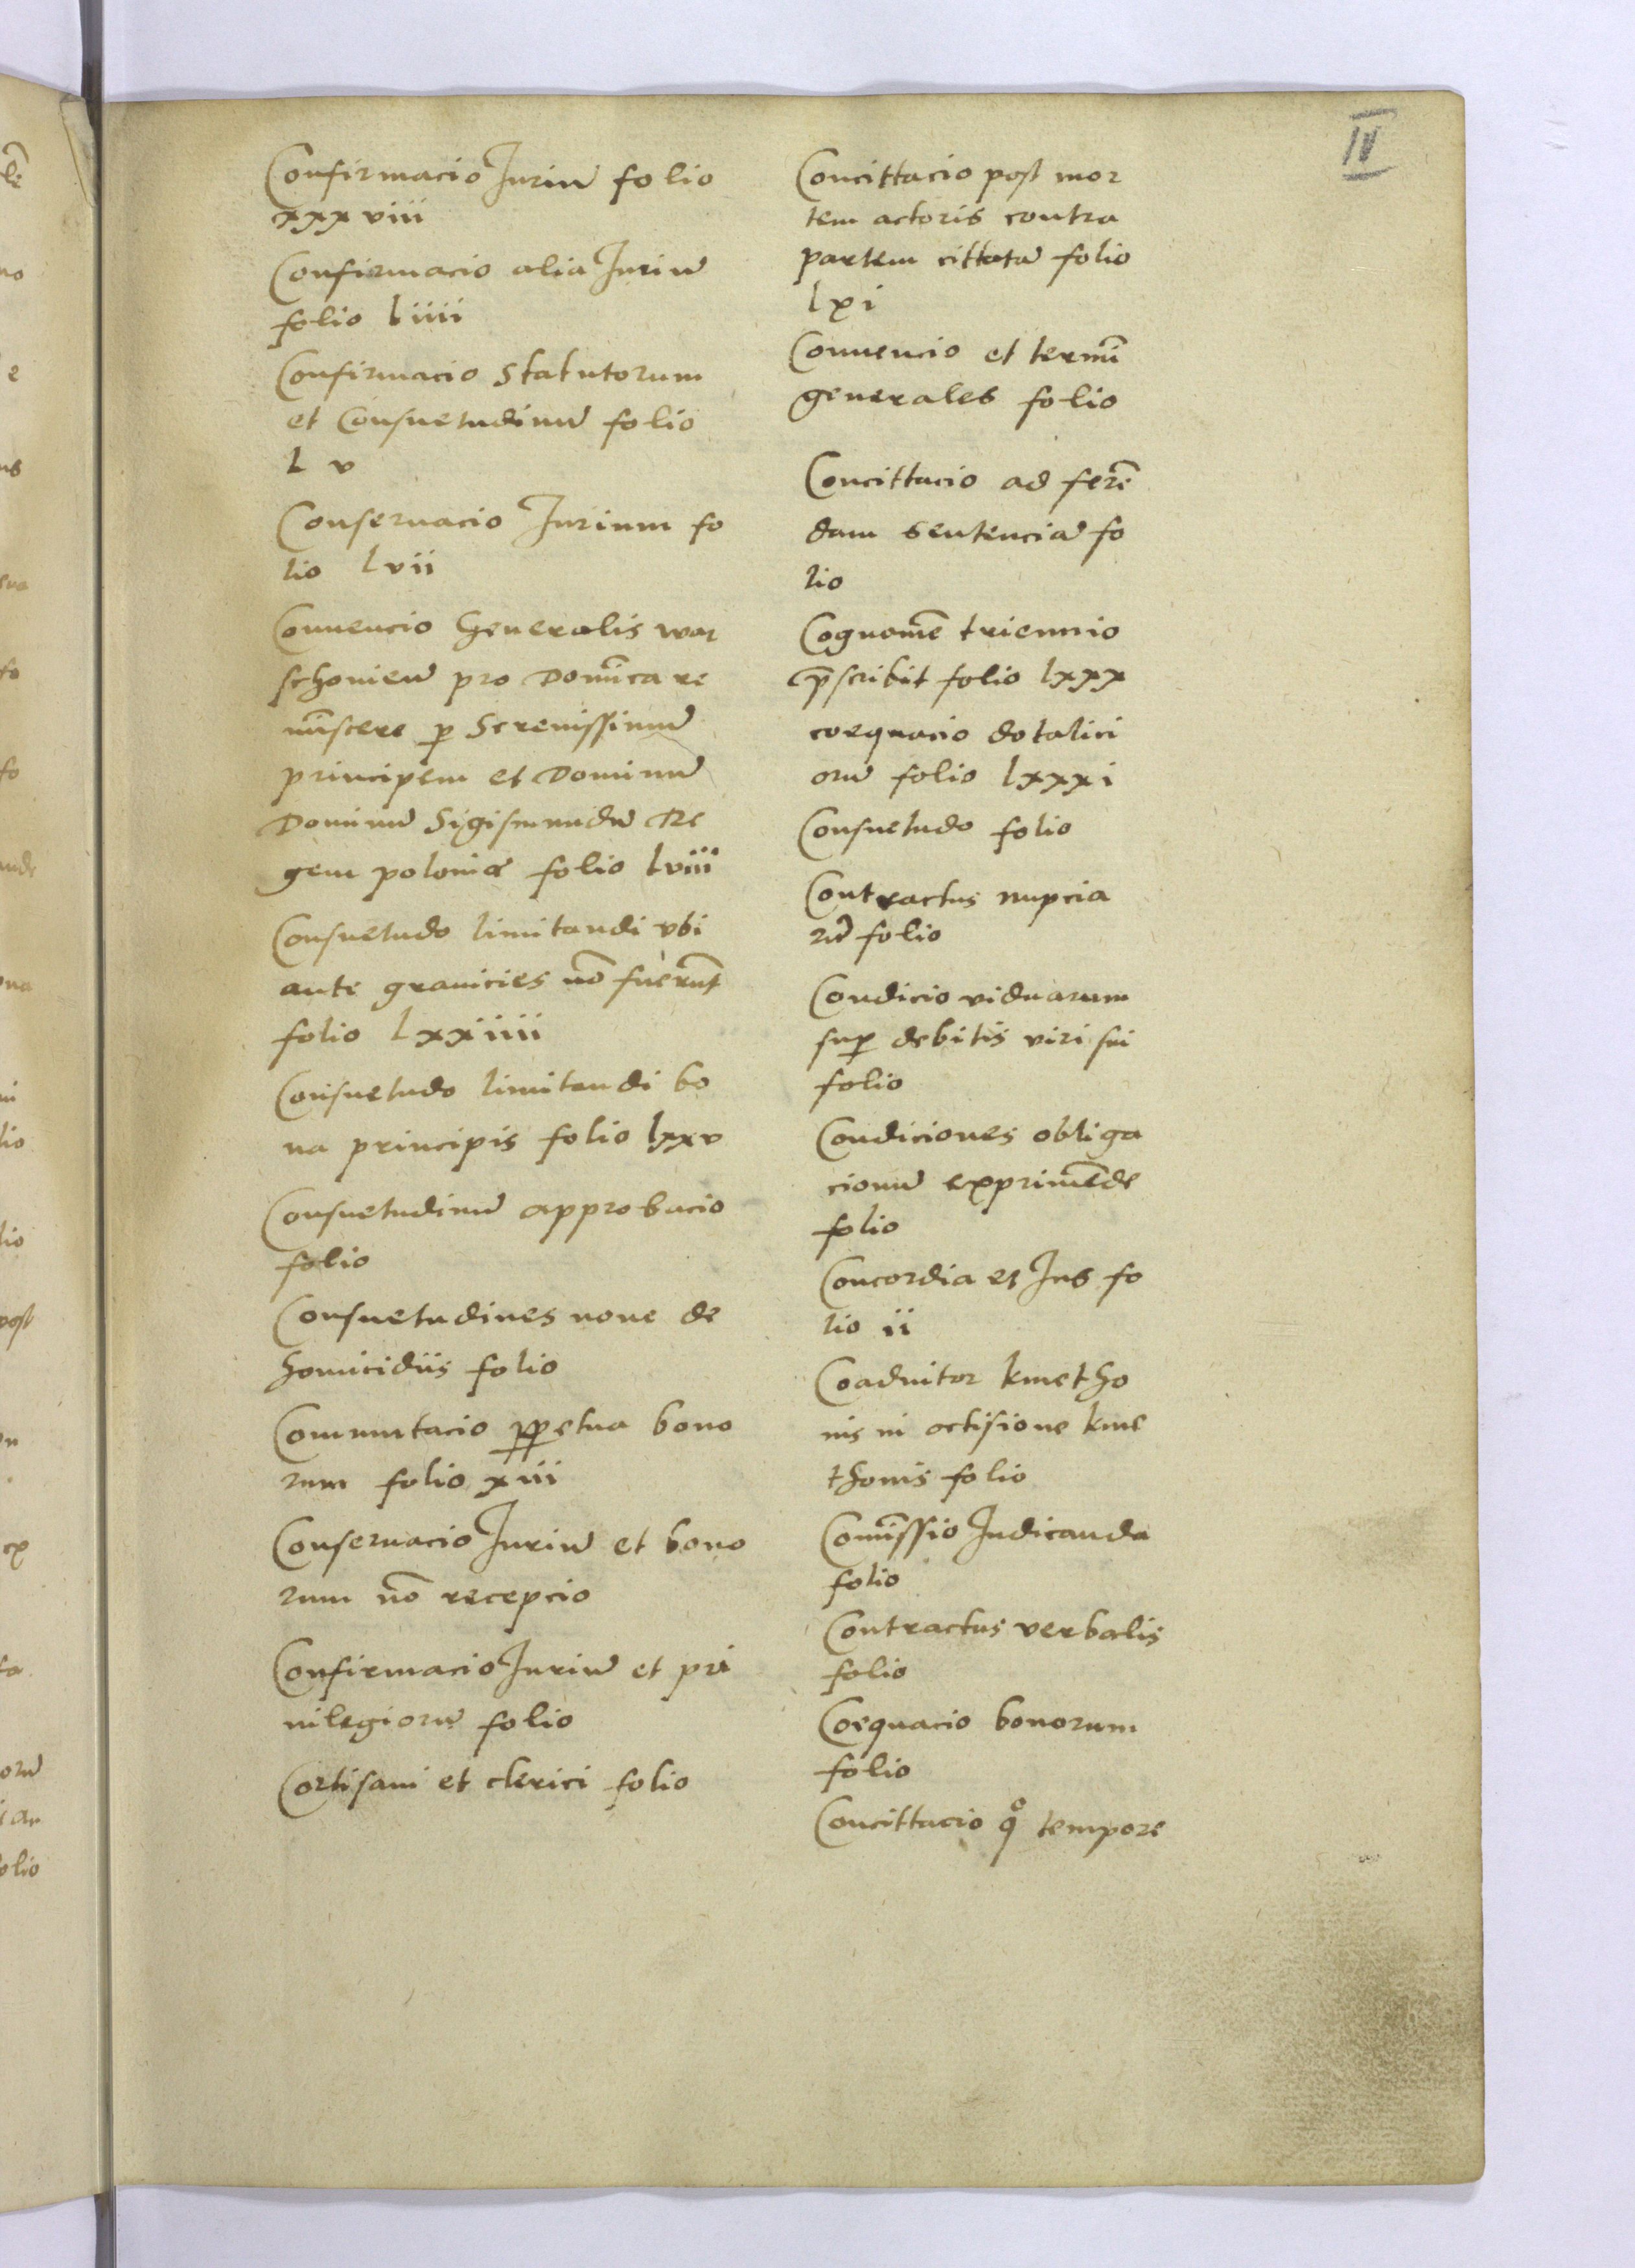 IV
Confirmacio Juriũ folio
xxxviii
Confirmacio alia Juriũ
folio liiii
Confirmacio Statutorum
et Consuetudinũ folio
l v
Conseruacio Jurium fo
lio lvii
Conuencio Generalis war
schouien̄ pro Domīca re
mīscere ꝑ Serenissimũ
principem et Dominũ
Dominũ Sigismundũ Re
gem poloniæ folio lviii
Consuetudo limitandi vbi
ante granicies nō fuerūt
folio lxxiiii
Consuetudo limitandi bo
na principis folio lxxv
Consuetudinũ approbacio
folio
Consuetudines noue de
homicidiis folio
Commutacio ꝑꝑetua bono
rum folio xiii
Conseruacio Juriũ et bono
rum nō recepcio
Confirmacio Juriũ et pri
uilegiorũ folio
Cortisani et clerici folio
Concittacio post mor
tem actoris contra
partem cittatã folio
lxi
Conuencio et termī
generales folio
Concittacio ad ferē
dam sentenciã fo
lio
Cognomē triennio
p̄scribit folio lxxx
coequacio dotalici
orũ folio lxxxi
Consuetudo folio
Contractus nupcia
rũ folio
Condicio viduarum
suꝑ debitis viri sui
folio
Condiciones obliga
cionũ exprimēde
folio
Concordia et Jus fo
lio ii
Coadiutor kmetho
nis in octisione kme
thonis folio
Comīssio Judicanda
folio
Contractus verbalis
folio
Coequacio bonorum
folio
Concittacio qͦ tempore